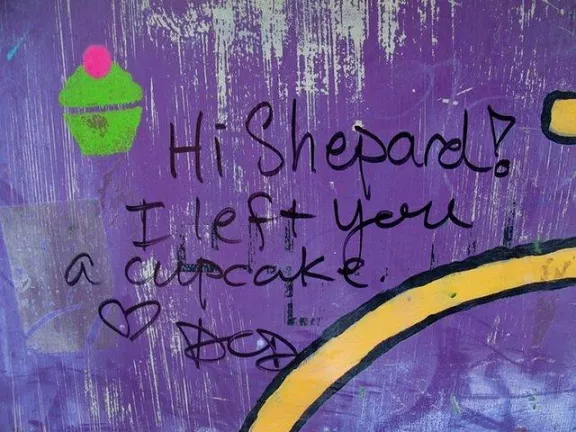 Hi Shepard!
I left you
a cupcake.
♡ DCD